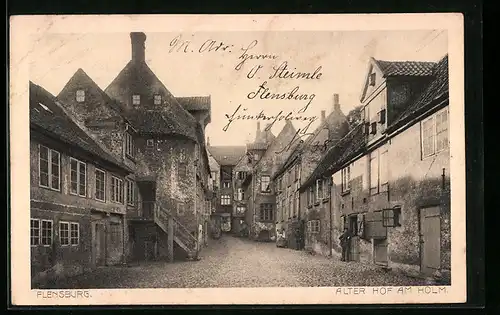 M. Adr. Herrn
O. Steimle
Flensburg
Junkerhohlweg
FLENSBURG.
ALTER HOF AM HOLM.